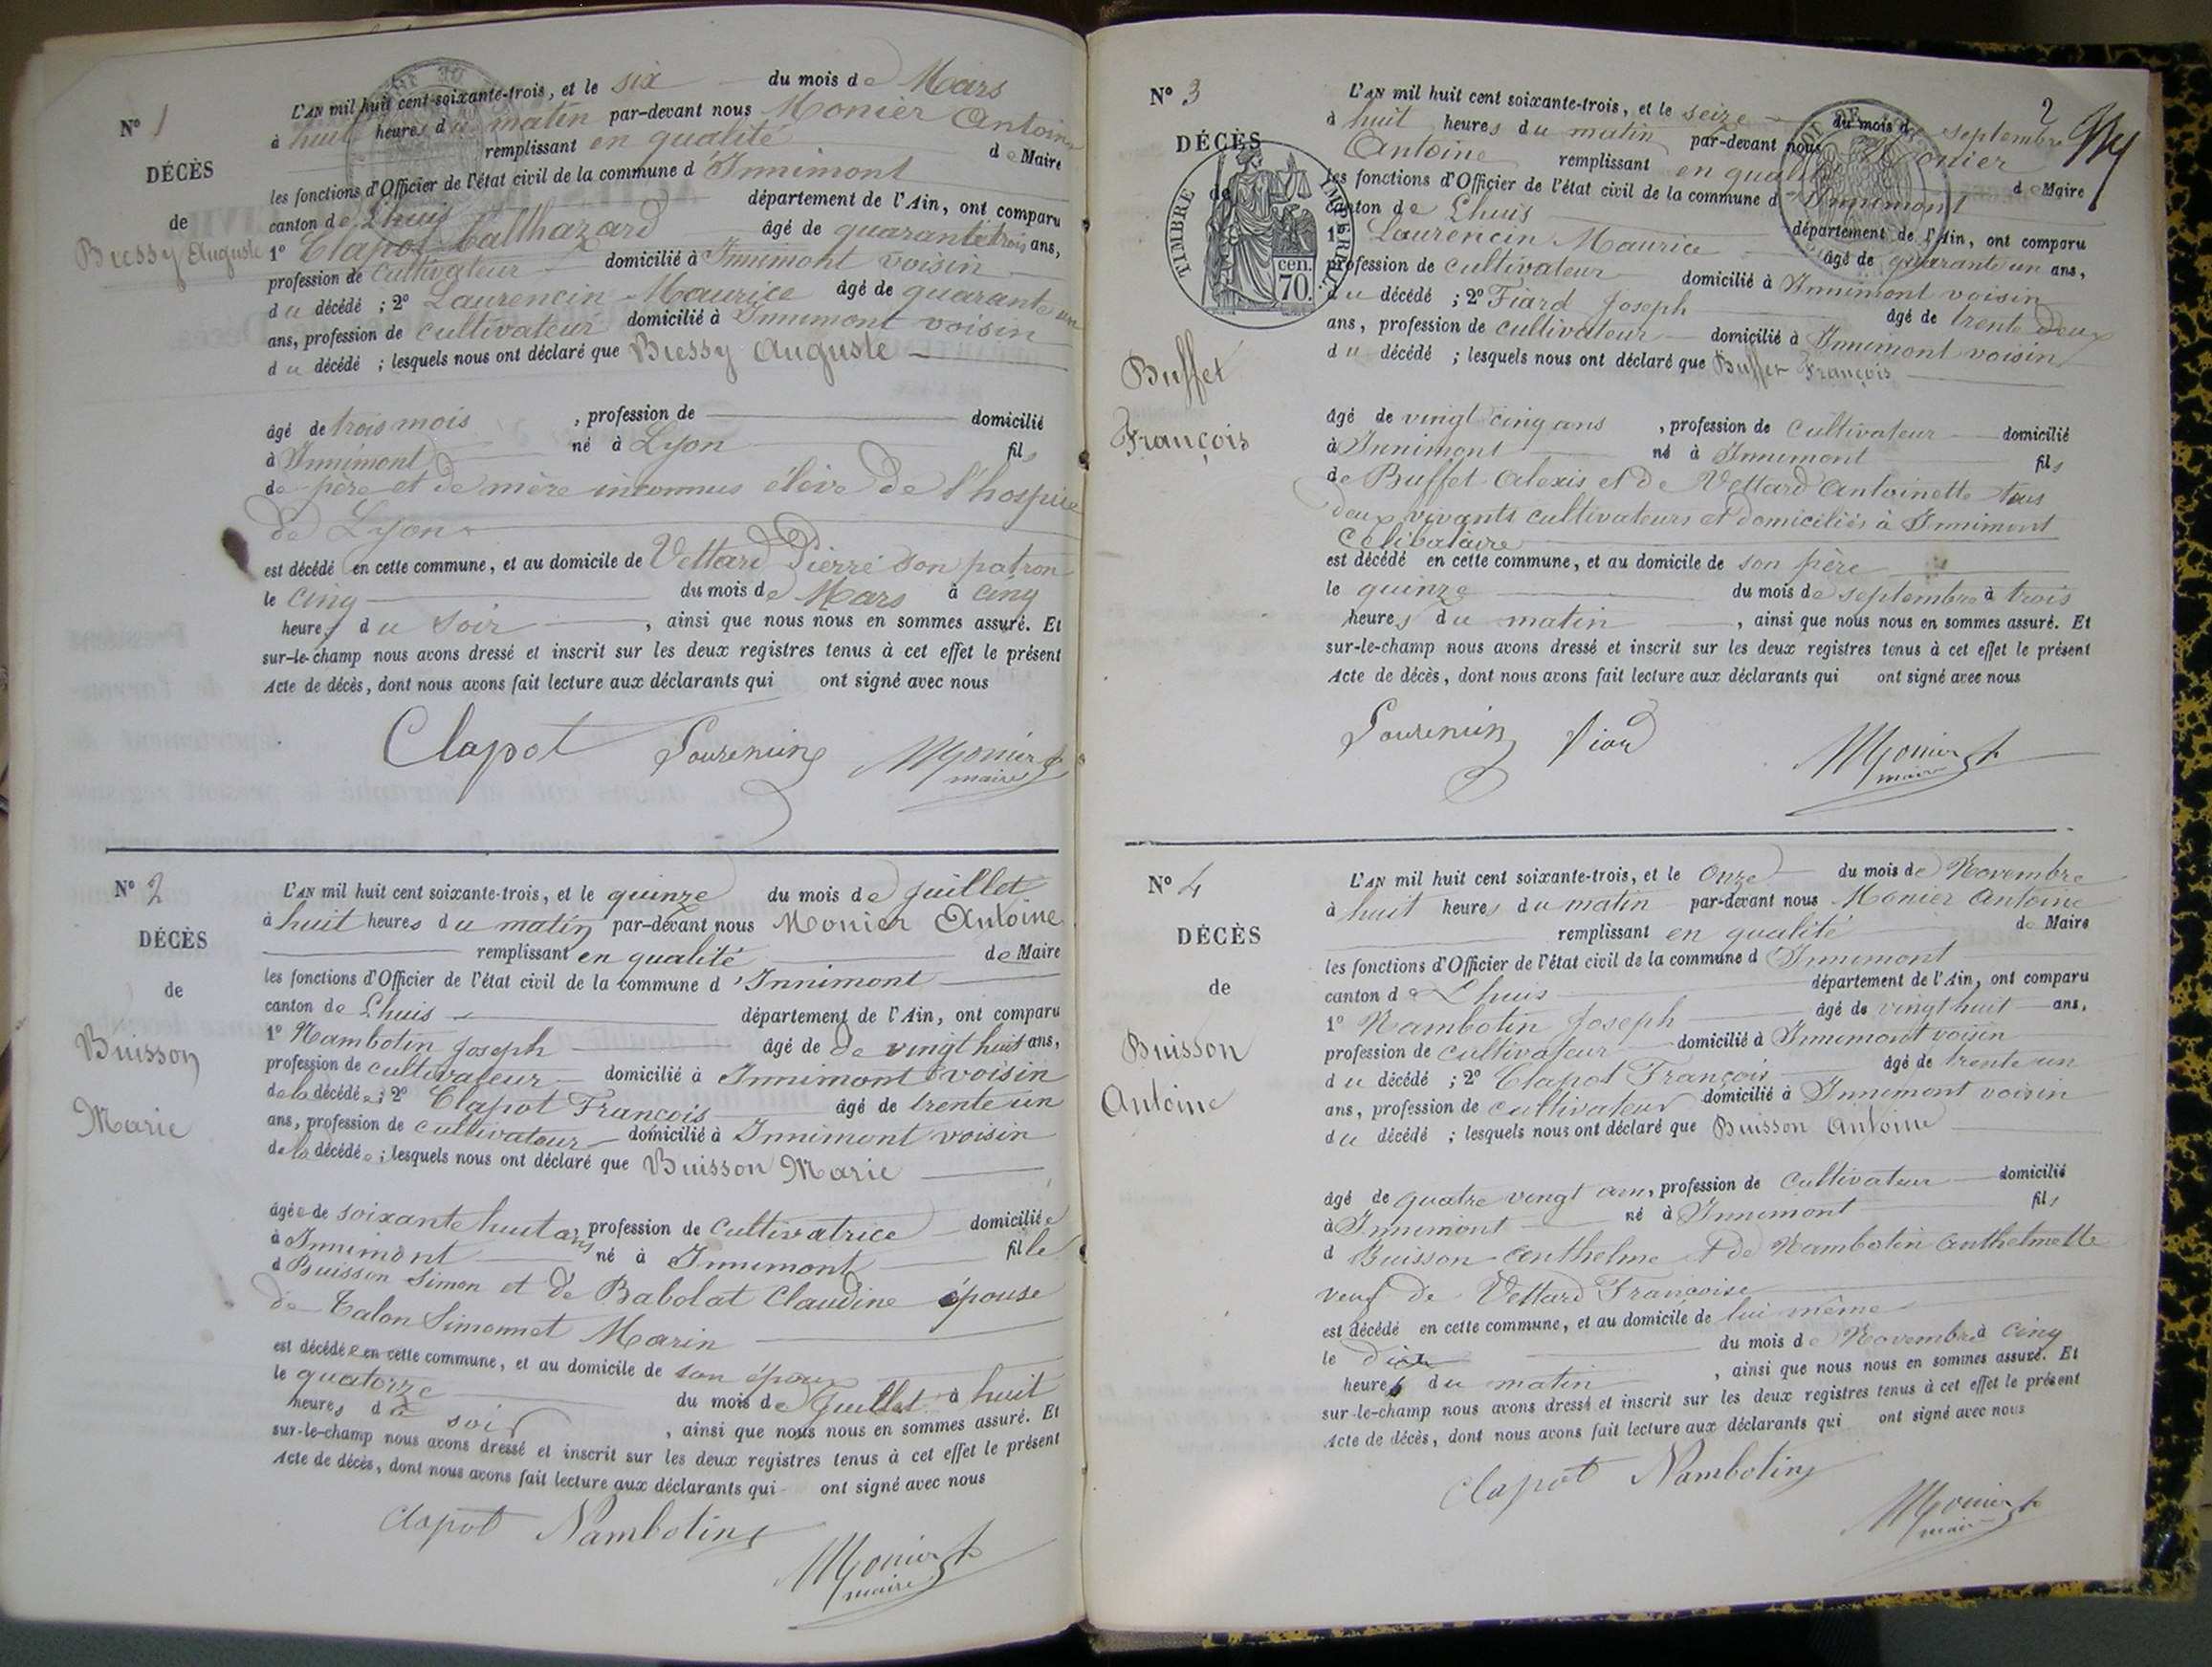 N° 1
DÉCÈS
de
Bressy Auguste
L'AN mil huit cent soixante-trois, et le six du mois de Mars
à huit heures du matin par-devant nous Monier Antoine
remplissant en qualité de Maire
les fonctions d'Officier de l'état civil de la commune d'Innimont
canton de Lhuis département de l'Ain, ont comparu
1° Clapot Balthazard âgé de quarante trois ans,
profession de cultivateur domicilié à Innimont voisin
du décédé ; 2° Laurencin Maurice âgé de quarante un
ans, profession de cultivateur domicilié à Innimont voisin
du décédé ; lesquels nous ont déclaré que Bressy Auguste
âgé de trois mois , profession de domicilié
à Innimont né à Lyon fils
de père et de mère inconnus élève de l'hospice
de Lyon
est décédé en cette commune, et au domicile de Vettard Pierre son patron
le cinq du mois de Mars à cinq
heures du soir , ainsi que nous nous en sommes assuré. Et
sur-le-champ nous avons dressé et inscrit sur les deux registres tenus à cet effet le présent
Acte de décès, dont nous avons fait lecture aux déclarants qui ont signé avec nous
Clapot Laurencin Monier
maire
N° 2
DÉCÈS
de
Buisson
Marie
L'AN mil huit cent soixante-trois, et le quinze du mois de Juillet
à huit heures du matin par-devant nous Monier Antoine
remplissant en qualité de Maire
les fonctions d'Officier de l'état civil de la commune d'Innimont
canton de Lhuis département de l'Ain, ont comparu
1° Nambotin Joseph âgé de de vingt huit ans,
profession de cultivateur domicilié à Innimont voisin
de la décédée ; 2° Clapot François âgé de trente un
ans, profession de cultivateur domicilié à Innimont voisin
de la décédée ; lesquels nous ont déclaré que Buisson Marie
âgée de soixante huit ans profession de cultivatrice domiciliée
à Innimont né à Innimont fille
d Buisson Simon et de Babolat Claudine épouse
de Talon Simonnet Marin
est décédée en cette commune, et au domicile de son époux
le quatorze du mois de Juillet à huit
heures du soir , ainsi que nous nous en sommes assuré. Et
sur-le-champ nous avons dressé et inscrit sur les deux registres tenus à cet effet le présent
Acte de décès, dont nous avons fait lecture aux déclarants qui ont signé avec nous
Clapot Nambotin
Monier
maire
2
N° 3
DÉCÈS
de
TIMBRE IMPERIAL
cen.
70.
Buffet
François
L'AN mil huit cent soixante-trois, et le seize du mois d septembre
à huit heures du matin par-devant nous Monier
Antoine remplissant en qualité de Maire
les fonctions d'Officier de l'état civil de la commune d Innimont
canton de Lhuis département de l'Ain, ont comparu
1° Laurencin Maurice âgé de quarante un ans,
profession de cultivateur domicilié à Innimont voisin
du décédé ; 2° Fiard Joseph âgé de trente deux
ans, profession de cultivateur domicilié à Innimont voisin
du décédé ; lesquels nous ont déclaré que Buffet François
âgé de vingt cinq ans , profession de cultivateur domicilié
à Innimont né à Innimont fils
de Buffet Alexis et de Vettard Antoinette tous
deux vivants cultivateurs et domiciliés à Innimont
Célibataire
est décédé en cette commune, et au domicile de son père
le quinze du mois de septembre à trois
heures du matin , ainsi que nous nous en sommes assuré. Et
sur-le-champ nous avons dressé et inscrit sur les deux registres tenus à cet effet le présent
Acte de décès, dont nous avons fait lecture aux déclarants qui ont signé avec nous
Laurencin Fiard
Monier
maire
N° 4
DÉCÈS
de
Buisson
Antoine
L'AN mil huit cent soixante-trois, et le onze du mois de Novembre
à huit heures du matin par-devant nous Monier Antoine
remplissant en qualité de Maire
les fonctions d'Officier de l'état civil de la commune d Innimont
canton de Lhuis département de l'Ain, ont comparu
1° Nambotin Joseph âgé de vingt huit ans,
profession de cultivateur domicilié à Innimont voisin
du décédé ; 2° Clapot François âgé de trente un
ans, profession de cultivateur domicilié à Innimont voisin
du décédé ; lesquels nous ont déclaré que Buisson Antoine
âgé de quatre vingt ans, profession de cultivateur domicilié
à Innimont né à Innimont fils
d Buisson Anthelme & de Nambotin Anthelmette
veuf de Vettard Françoise
est décédé en cette commune, et au domicile de lui même
le dix du mois de Novembre à cinq
heures du matin , ainsi que nous nous en sommes assuré. Et
sur-le-champ nous avons dressé et inscrit sur les deux registres tenus à cet effet le présent
Acte de décès, dont nous avons fait lecture aux déclarants qui ont signé avec nous
Clapot Nambotin
Monier
maire